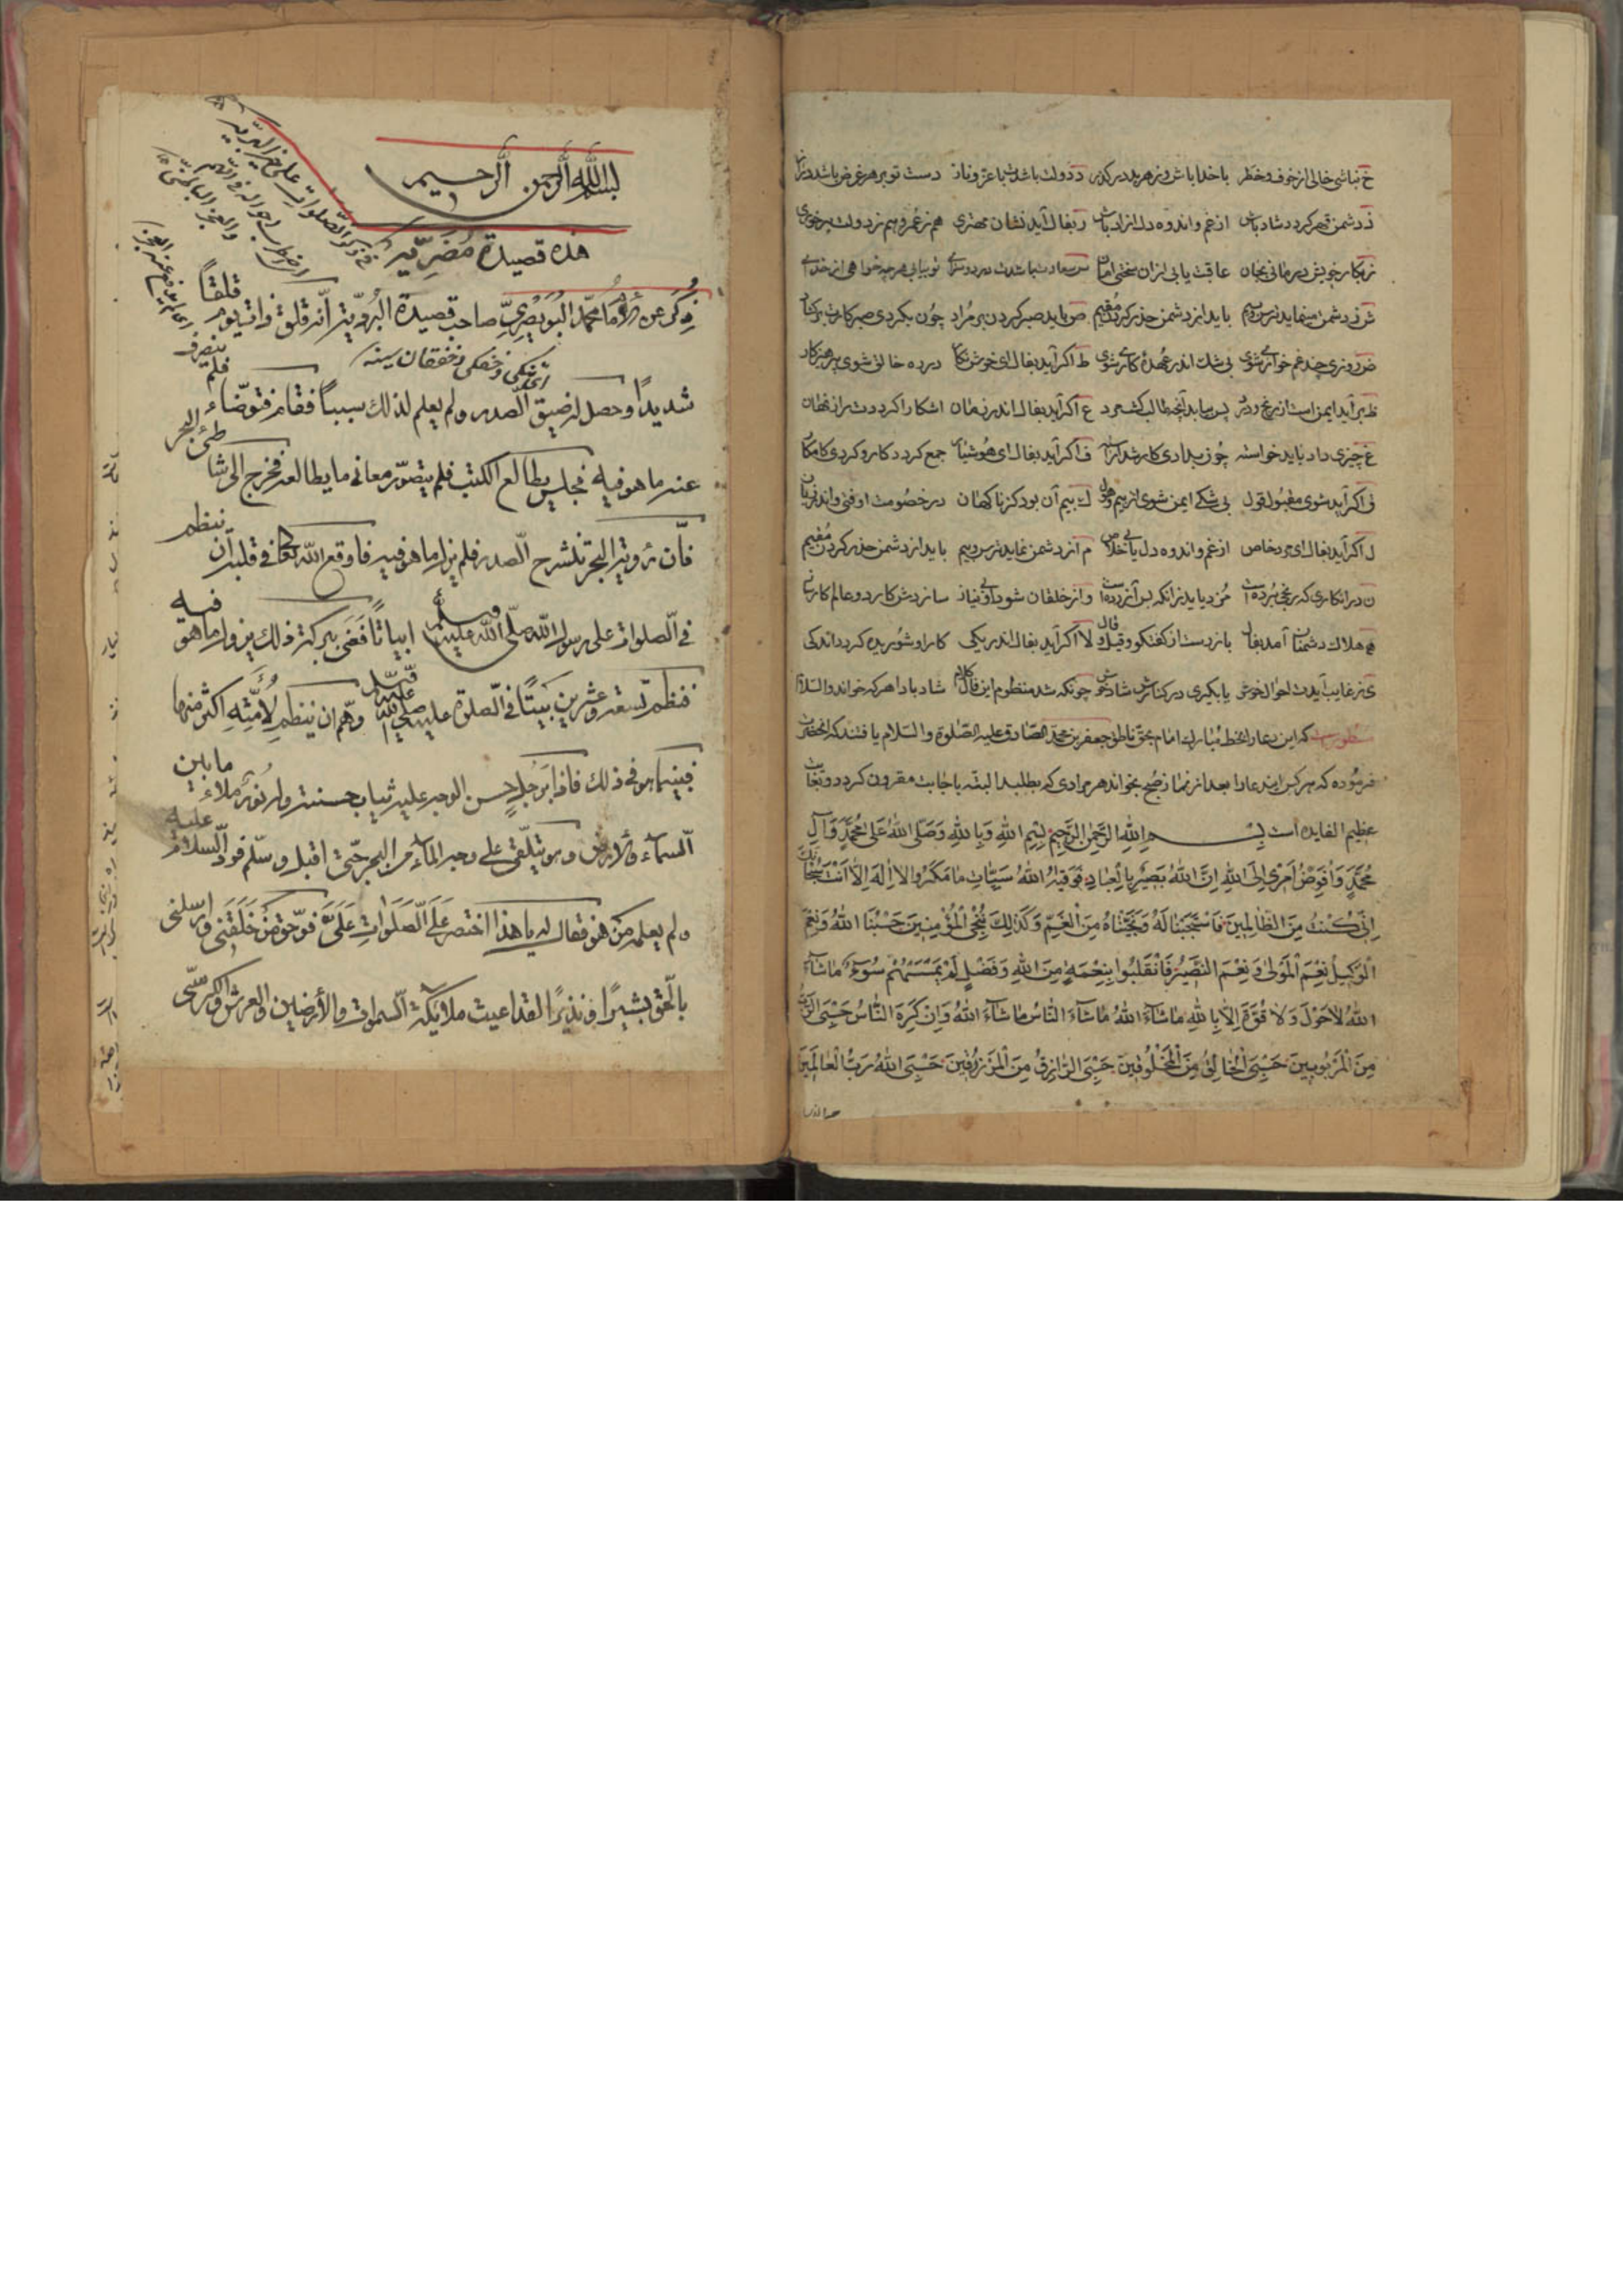 خ نباشی خالی از خوف و خطر با خدا باش و ز هر بد در گذر د دولت باشدت با عز و ناز دست تو بر هر غرض باشد دراز
ذ دشمن قهر گردد شاد باش از غم و اندوه دل ازاد باش ر بفال آید نشان مهتری هم ز عمر و هم ز دولت برخوری
ز بکار خویش درمانی بجان عاقبت یابی ازان سختی امان س سعادت باشدت در دو سرای
ش ز دشمن مینماید ترس و بیم باید از دشمن حذر کردن مقیم ص باید صبر کردن بر مراد چون بکردی صبر کارت برکشاد
ض روزی چند غم خواره شوی بی شک اندر عهدهٔ کاری شوی ط اگر آید بفال ای خوش نگار درره خالق شوی پرهیزکار
ظ برآید ایمن است از رنج و درد پس بیابد آنچه طالب گشت مرد ع اگر آید بفال اندر زمان اشکارا گرددت راز نهان
غ چیزی داد باید خواسته چون بدادی کار شد آراسته ف اگر آید بفال ای هوشیار جمع گردد کار و کردی کامکار
ق اگر آید شوی مقبول قول بی شکی ایمن شوی از بیم و هول ك بیم آن بود کز ناکهان در خصومت اوفتی واندر زیان
ل اگر آید بفال ای مرد خاص از غم و اندوه دل یابی خلاص م آنز دشمن نماید ترس و بیم باید از دشمن حذر کردن مقیم
ن در انکاری که رنجی برده است مزد یابد زانکه بس آزرده است و از خلقان شود او بی نیاز
ه هلاك دشمنان آمد بفال باز دست از گفتگو و قیل و قال لا اگر آید بفال اندر یکی کار او شوریده گردد اندکی
ی ز غایب آیدت احوال خوش یا بگیری در کنارش شاد خوش چونکه شد منظوم این فال کلام شاد بادا هر که خواند والسلام
منظور است که این دعا را بخط مبارك امام بحق ناطق جعفر بن محمد الصادق علیه الصلوة والسلام یافتند که انحضرت
فرموده که هر کس ایندعا را بعد از نماز صبح بخواند هر مرادی که بطلبد البته باجابت مقرون گردد و بغایت
عظیم الفایده است بِسْمِ اللهِ الرَّحْمٰنِ الرَّحِیمِ بِسْمِ اللهِ وَبِاللهِ وَصَلَّی اللهُ عَلی مُحَمَّدٍ وَآلِ
مُحَمَّدٍ وَاُفَوِّضُ اَمْرِی اِلَی اللهِ اِنَّ اللهَ بَصِیرٌ بِالْعِبَادِ فَوَقٰیهُ اللهُ سَیِّئَاتِ مَا مَکَرُوا لَا اِلٰهَ اِلَّا اَنْتَ سُبْحَانَكَ
اِنِّی کُنْتُ مِنَ الظَّالِمِینَ فَاسْتَجَبْنَا لَهُ وَنَجَّیْنَاهُ مِنَ الْغَمِّ وَکَذٰلِكَ نُنْجِی الْمُؤْمِنِینَ حَسْبُنَا اللهُ وَنِعْمَ
الْوَکِیلُ نِعْمَ الْمَوْلٰی وَنِعْمَ النَّصِیرُ فَانْقَلَبُوا بِنِعْمَةٍ مِنَ اللهِ وَفَضْلٍ لَمْ یَمْسَسْهُمْ سُوءٌ مَاشَاءَ
اللهُ لَاحَوْلَ وَلَا قُوَّةَ اِلَّا بِاللهِ مَاشَاءَ اللهُ مَاشَاءَ النَّاسُ مَاشَاءَ اللهُ وَاِنْ کَرِهَ النَّاسُ حَسْبِیَ الرَّبُّ
مِنَ الْمَرْبُوبِینَ حَسْبِیَ الْخَالِقُ مِنَ الْمَخْلُوقِینَ حَسْبِیَ الرَّازِقُ مِنَ الْمَرْزُوقِینَ حَسْبِیَ اللهُ رَبُّ الْعَالَمِینَ
بسم الله الرحمن الرحيم
هذه قصيدة مُضَرِيّه
في ذكر الصلوات على خير البريّه
ذُكر عن الامام محمّد البُويصريّ صاحب قصيدة البُردية انّه قلق ذات يوم قلقاً
شديدًا وحصل له ضيق الصدر ولم يعلم لذلك سبباً فقام فتوضّاء فلم
عنه ما هو فيه فجلس يطالع الكتب فلم يتصوّر معاني ما يطالعه فخرج الى شاطئ البحر
فانّ رؤية البحر تشرح الصدر فلم يزل ما هو فيه فاوقع الله تعالى في قلبه ان ينظم
في الصلوات على رسول الله صلّى الله عليه وسلم ابياتاً فعَسى ببركة ذلك يزول ما هو فيه
فنظم تسعة وعشرين بَيتًا في الصلوة عليه صلى الله عليه وسلم وهمّ ان ينظم لأمّته اكثر منها
فبينما هو في ذلك فاذا برَجُلٍ حسن الوجه عليه ثياب حسنة وله نورٌ ملاء ما بين
السماء والارض وهو يتلقّى على وجه الماء من البحر حتى اقبل وسلّم فردّ السلام عليه
ولم يعلم مَن هو فقال له يا هذا اختصر عَلَى الصَلَوات عَلَيَّ فوَ حَقّ مَنْ خَلَقَني وارسلني
بالحقّ بشيرًا ونذيرًا لقد اعيت ملائكة السموات والأرضين والعرش والكرسّى